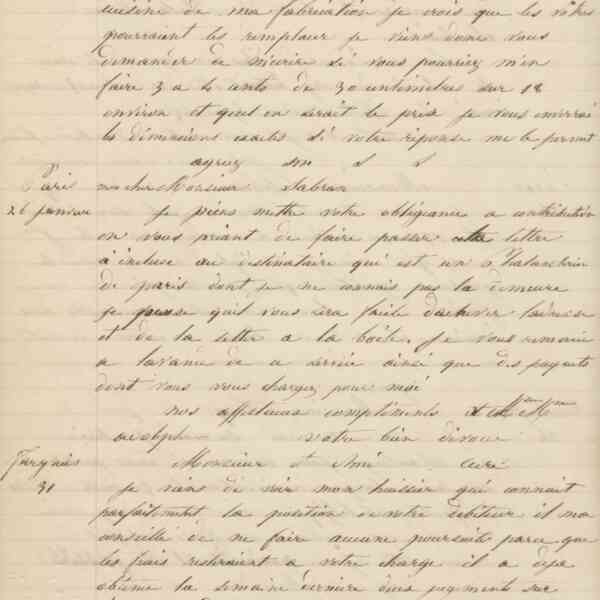 cuisine de ma fabrication je crois que les vôtres
pourraient les remplacer je viens donc vous
demander de m'écrire si vous pourriez m'en
faire 3 a 4 cents de 30 centimetres sur 18
environ et quel en serait le prix je vous enverrai
les dimensions exactes si votre réponse me le permet
agreez
Paris mon cher Monsieur Sabran
26 janvier je viens mettre votre obligeance a contribution
en vous priant de faire passer cette lettre
à incluse au destinataire qui est un
de paris dont je ne connais pas la demeure
je pense quil vous sera facile de l'adresse
et de la lettre a la boite. Je vous remercie
a lavance de ce service ainsi que des payements
dont vous vous chargez pour moi
nos affectueux compliments et
votre bien dévoué
Monsieur et Ami
31 je viens de voir mon huissier qui connait
parfaitement la position de votre débiteur il ma
conseillé de ne faire aucune poursuite parce que
les frais resteraient a votre charge il a deja
obtenu la semaine dernière deux jugements sur